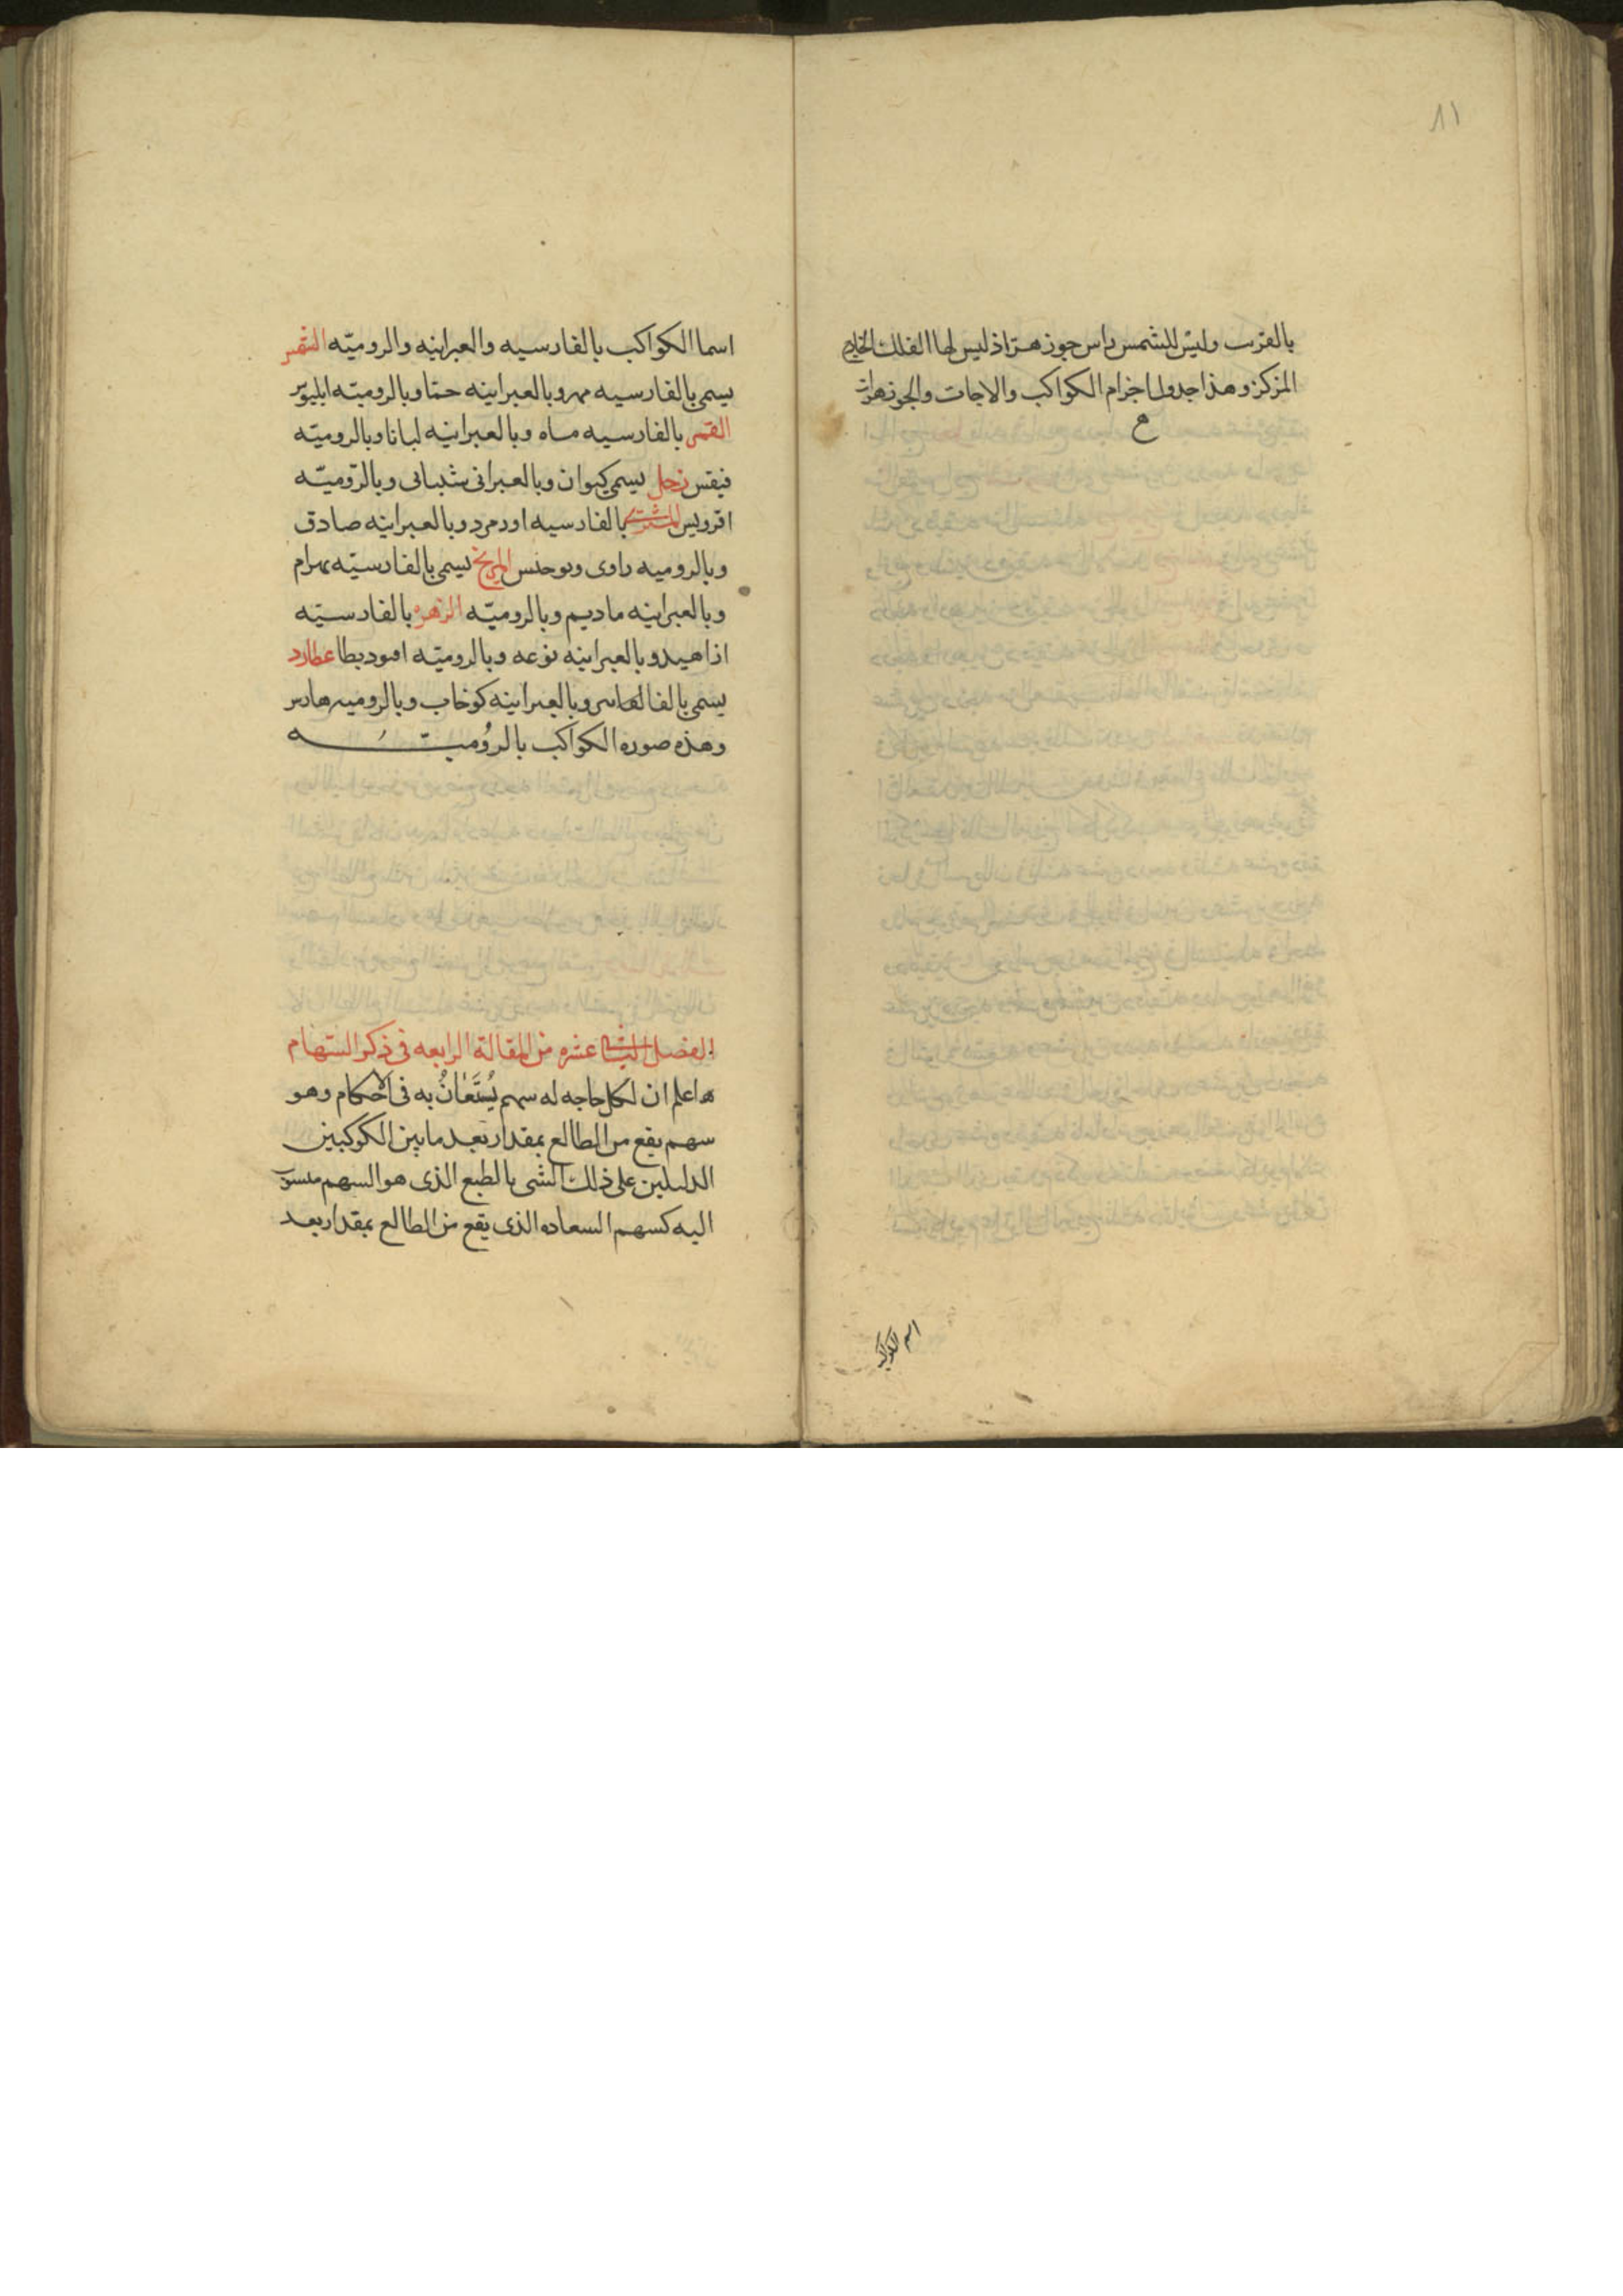 ٨١
بالقرب وليس للشمس راس جوزهر اذ ليس لها الفلك الخارج
المركز وهذا جدول اجرام الكواكب والاجات والجوزهرات
اسم الكواكب
اسما الكواكب بالفارسيه والعبرانيه والروميّه الشمس
يسمى بالفارسيه مهر وبالعبرانيه حمّا وبالروميّه ايليوس
القمر بالفارسيه ماه وبالعبرانيه لبانا وبالروميّه
فيقس زحل يسمى كيوان وبالعبرانى شبتاى وبالرّوميّه
اقرويس المشترى بالفارسيه اورمزد وبالعبرانيه صادق
وبالروميه راوى المريخ يسمى بالفارسيّه بهرام
وبالعبرانيه ماديم وبالروميّه الزهره بالفارسيّه
اناهيد وبالعبرانيه نوغه وبالروميّه عطارد
يسمى وبالعبرانيه كوخاب وبالروميه
وهذه صوره الكواكب بالرُوميّه
الفصل عشره من المقالة الرابعه فى ذكر السهام
اعلم ان لكل حاجه له سهم يُسْتَعَانُ به فى الاحكام وهو
سهم يقع من الطالع بمقدار بعد ما بين الكوكبين
الدليلين على ذلك الشى بالطبع الذى هو السهم منسوب
اليه كسهم السعاده الذى يقع من الطالع بمقدار بعد